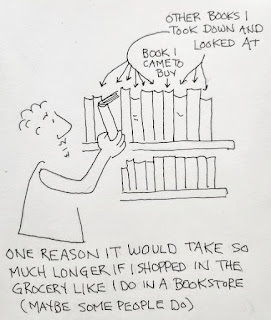 OTHER BOOKS I
TOOK DOWN AND
LOOKED AT
BOOK I
CAME TO
BUY
ONE REASON IT WOULD TAKE SO
MUCH LONGER IF I SHOPPED IN THE
GROCERY LIKE I DO IN A BOOKSTORE
(MAYBE SOME PEOPLE DO)